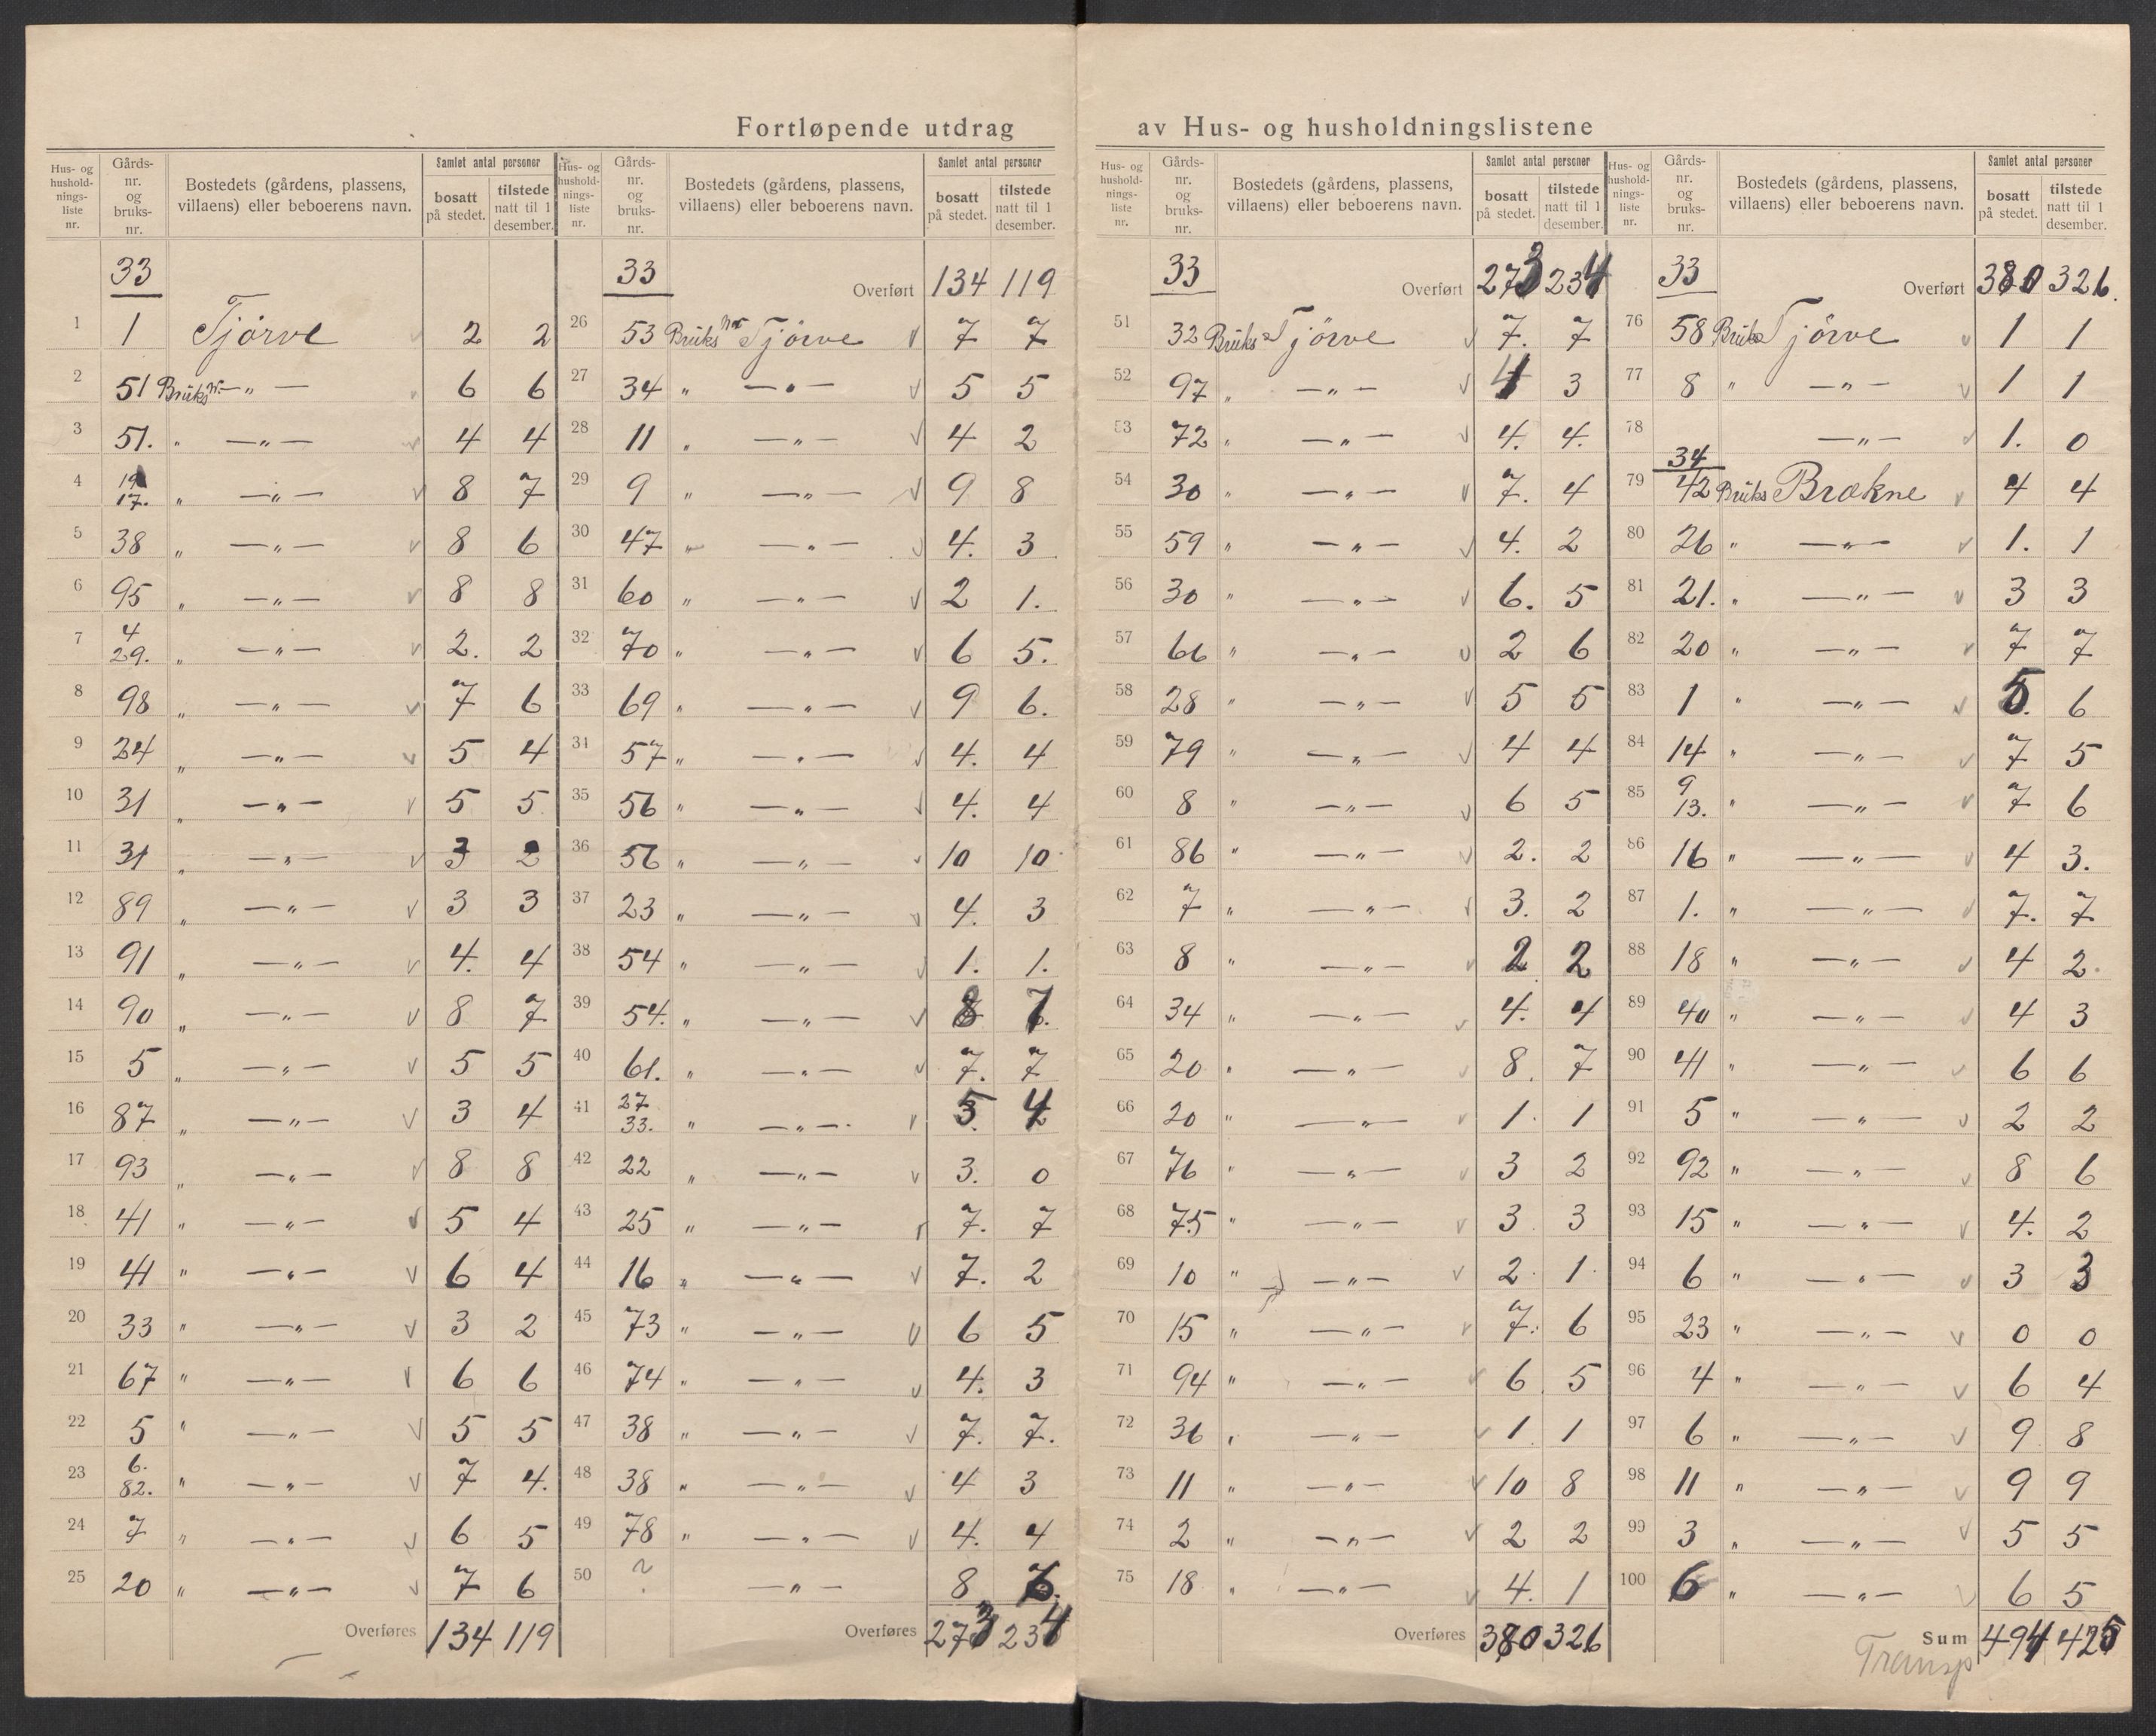 Fortløpende utdrag av Hus- og husholdningslistene
Hus- og hushold-nings-liste nr. Gårds-nr. og bruks-nr. Bostedets (gårdens, plassens, villaens) eller beboerens navn. Samlet antal personer bosatt på stedet. tilstede natt til 1 desember.
33
1 1 Tjörve 2 2
2 51 Bruks nr. —„— 6 6
3 51. „ —„— 4 4
4 17. „ —„— 8 7
5 38 „ —„— 8 6
6 95 „ —„— 8 8
7 4 29. „ —„— 2. 2
8 98 „ —„— 7 6
9 24 „ —„— 5 4
10 31 „ —„— 5 5
11 31 „ —„— 3 2
12 89 „ —„— 3 3
13 91 „ —„— 4. 4
14 90 „ —„— 8 7
15 5 „ —„— 5 5
16 87 „ —„— 3 4
17 93 „ —„— 8 8
18 41 „ —„— 5 4
19 41 „ —„— 6 4
20 33 „ —„— 3 2
21 67 „ —„— 6 6
22 5 „ —„— 5 5
23 6. 82. „ —„— 7 4.
24 7 „ —„— 6 5
25 20 „ —„— 7 6
Overføres 134 119
Hus- og hushold-nings-liste nr. Gårds-nr. og bruks-nr. Bostedets (gårdens, plassens, villaens) eller beboerens navn. Samlet antal personer bosatt på stedet. tilstede natt til 1 desember.
33 Overført 134 119
26 53 Bruks nr Tjörve 7 7
27 34 „ —„— 5 5
28 11 „ —„— 4 2
29 9 „ —„— 9 8
30 47 „ —„— 4. 3
31 60 „ —„— 2 1.
32 70 „ —„— 6 5.
33 69 „ —„— 9 6.
34 57 „ —„— 4. 4
35 56 „ —„— 4. 4
36 56 „ —„— 10 10
37 23 „ —„— 4. 3
38 54 „ —„— 1. 1.
39 54. „ —„— 8 7.
40 61. „ —„— 7. 7
41 27 33. „ —„— 5 4
42 22 „ —„— 3. 0
43 25 „ —„— 7. 7
44 16 „ —„— 7. 2
45 73 „ —„— 6 5
46 74 „ —„— 4. 3
47 38 „ —„— 7. 7.
48 38 „ —„— 4 3
49 78 „ —„— 4. 4
50 ? —„— 8
Overføres 273 234
Hus- og hushold-nings-liste nr. Gårds-nr. og bruks-nr. Bostedets (gårdens, plassens, villaens) eller beboerens navn. Samlet antal personer bosatt på stedet. tilstede natt til 1 desember.
33 Overført 273 234
51 32 Bruks Tjörve 7. 7
52 97 „ —„— 4 3
53 72 „ —„— 4. 4.
54 30 „ —„— 7. 4
55 59 „ —„— 4. 2
56 30 „ —„— 6. 5
57 66 „ —„— 2 6
58 28 „ —„— 5 5
59 79 „ —„— 4 4
60 8 „ —„— 6 5
61 86 „ —„— 2. 2
62 7 „ —„— 3. 2
63 8 „ —„— 2 2
64 34 „ —„— 4. 4
65 20 „ —„— 8. 7
66 20 „ —„— 1. 1
67 76 „ —„— 3 2
68 75 „ —„— 3 3
69 10 „ —„— 2. 1.
70 15 „ —„— 7. 6
71 94 „ —„— 6 5
72 36 „ —„— 1. 1
73 11 „ —„— 10 8
74 2 „ —„— 2 2
75 18 „ —„— 4. 1
Overføres 380 326
Hus- og hushold-nings-liste nr. Gårds-nr. og bruks-nr. Bostedets (gårdens, plassens, villaens) eller beboerens navn. Samlet antal personer bosatt på stedet. tilstede natt til 1 desember.
33 Overført 380 326.
76 58 Bruks Tjörve 1 1
77 8 „ —„— 1 1
78 —„— 1. 0
34
79 42 Bruks Brækne 4 4
80 26 „ —„— 1. 1
81 21. „ —„— 3 3
82 20 „ —„— 7 7
83 1 „ —„— 5. 6
84 14 „ —„— 7 5
85 9 13. „ —„— 7 6
86 16 „ —„— 4 3.
87 1. „ —„— 7. 7
88 18 „ —„— 4 2.
89 40 „ —„— 4 3
90 41 „ —„— 6 6
91 5 „ —„— 2 2
92 92 „ —„— 8 6
93 15 „ —„— 4. 2
94 6 „ —„— 3 3
95 23 „ —„— 0 0
96 4 „ —„— 6 4
97 6 „ —„— 9 8
98 11 „ —„— 9 9
99 3 „ —„— 5 5
100 6 „ —„— 6 5
Sum 494 425
Transp